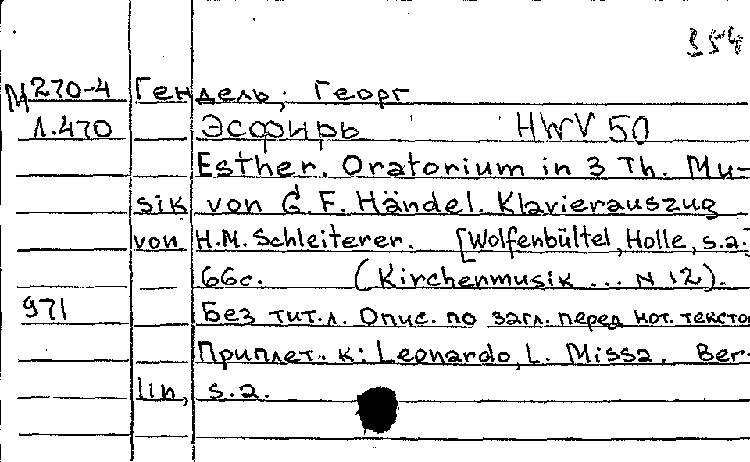 354
М270-4 Гендель, Георг
Л.470 Эсфирь HWV 50
Esther. Oratorium in 3 Th. Mu-
sik von G. F. Händel. Klavierauszug
von H.M. Schleiterer. [Wolfenbültel, Holle, s.a.]
66c. (Kirchenmusik ... N 12).
971 Без тит.л. Опис. по загл. перед нот. тексто
Приплет. к: Leonardo, L. Missa. Ber-
lin, s.a.